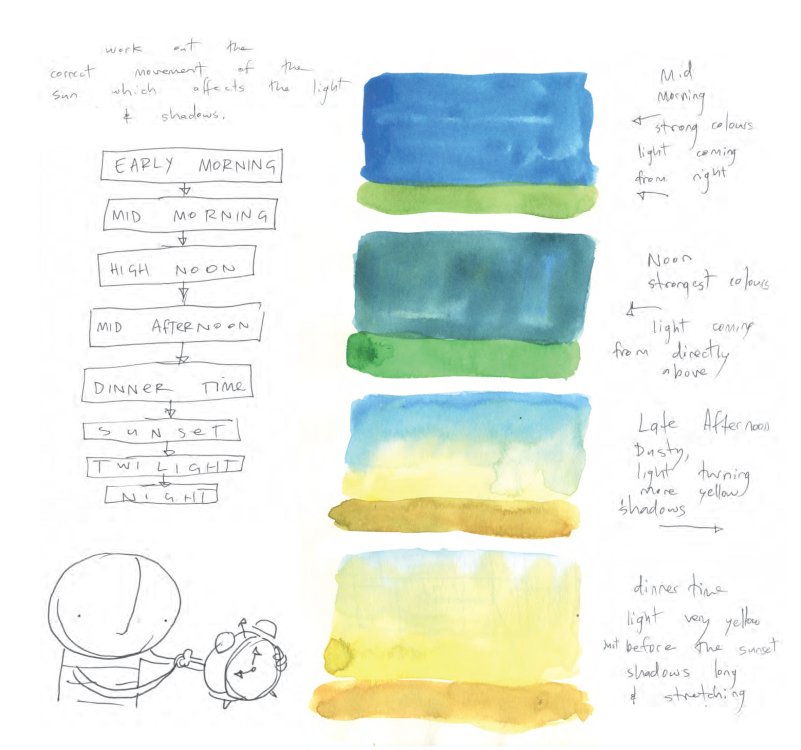 work out the
correct movement of the
sun which affects the light
& shadows.
EARLY MORNING
MID MORNING
HIGH NOON
MID AFTERNOON
DINNER TIME
SUNSET
TWILIGHT
NIGHT
Mid
Morning
strong colours
light coming
from right
Noon
strongest colours
light coming
from directly
above
Late Afternoon
Dusty,
light turning
more yellow
shadows
dinner time
light very yellow
just before the sunset
shadows long
& stretching